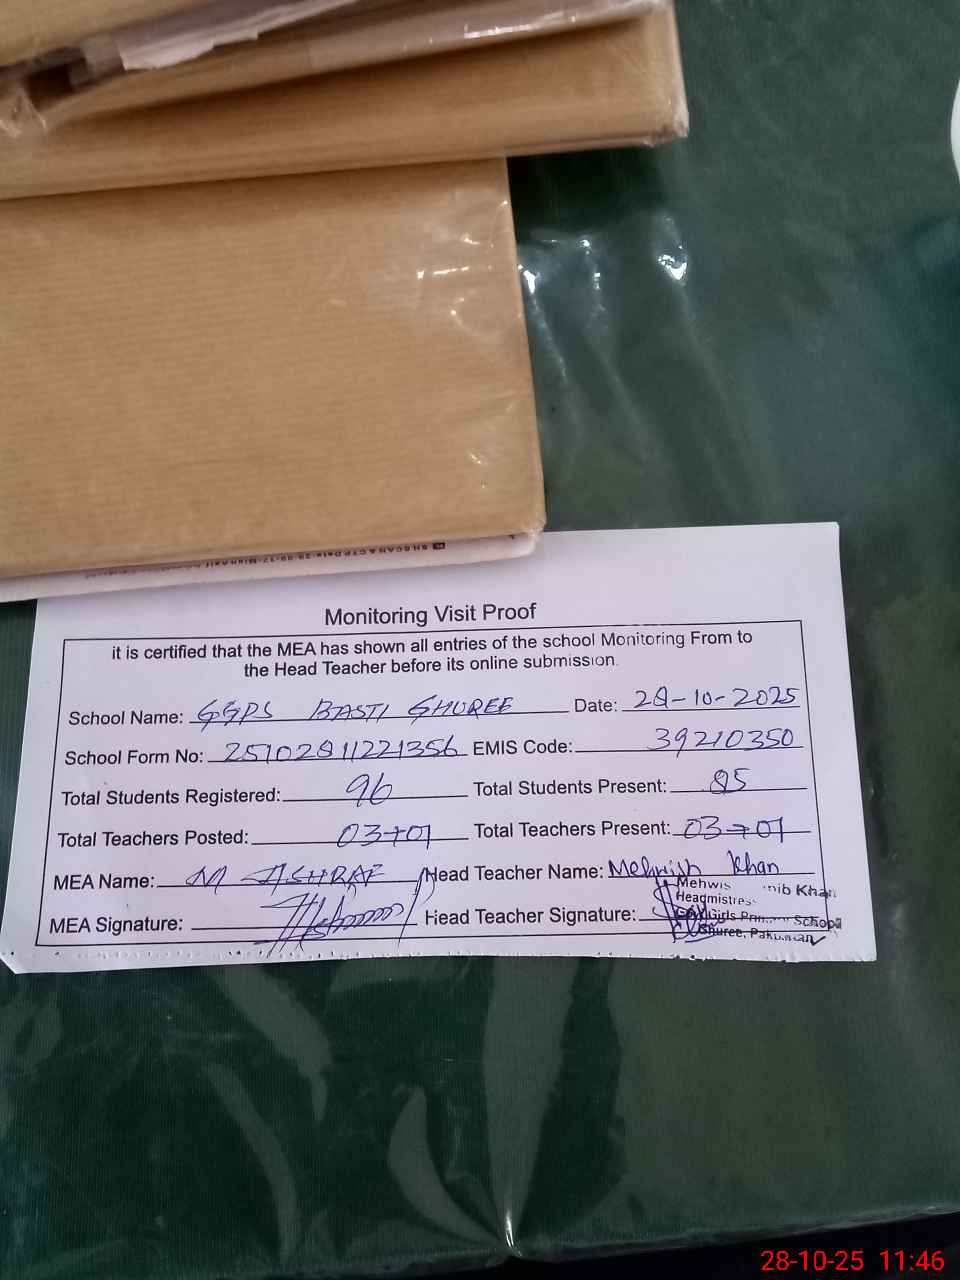 Monitoring Visit Proof
it is certified that the MEA has shown all entries of the school Monitoring From to
the Head Teacher before its online submission.
School Name: GGPS BASTI GHUREE Date: 28-10-2025
School Form No: 25102811221356 EMIS Code: 39210350
Total Students Registered: 96 Total Students Present: 85
Total Teachers Posted: 03+01 Total Teachers Present: 03+01
MEA Name: M ASHRAF Head Teacher Name: Mehwish Khan
MEA Signature: Head Teacher Signature:
Khan
Headmistress
Girls School
Ghuree,
28-10-25 11:46